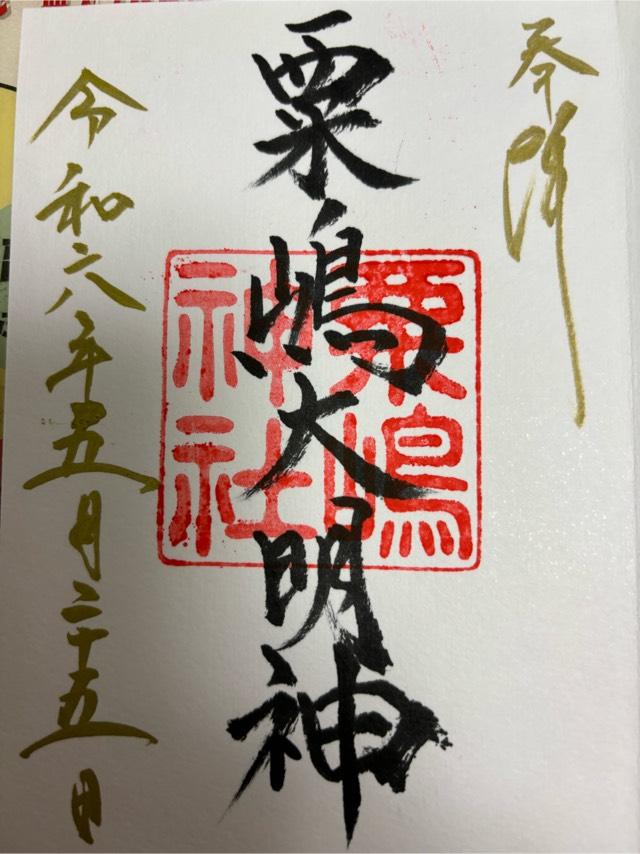 奉拝
粟嶋大明神
粟嶋
神社
令和六年五月二十五日